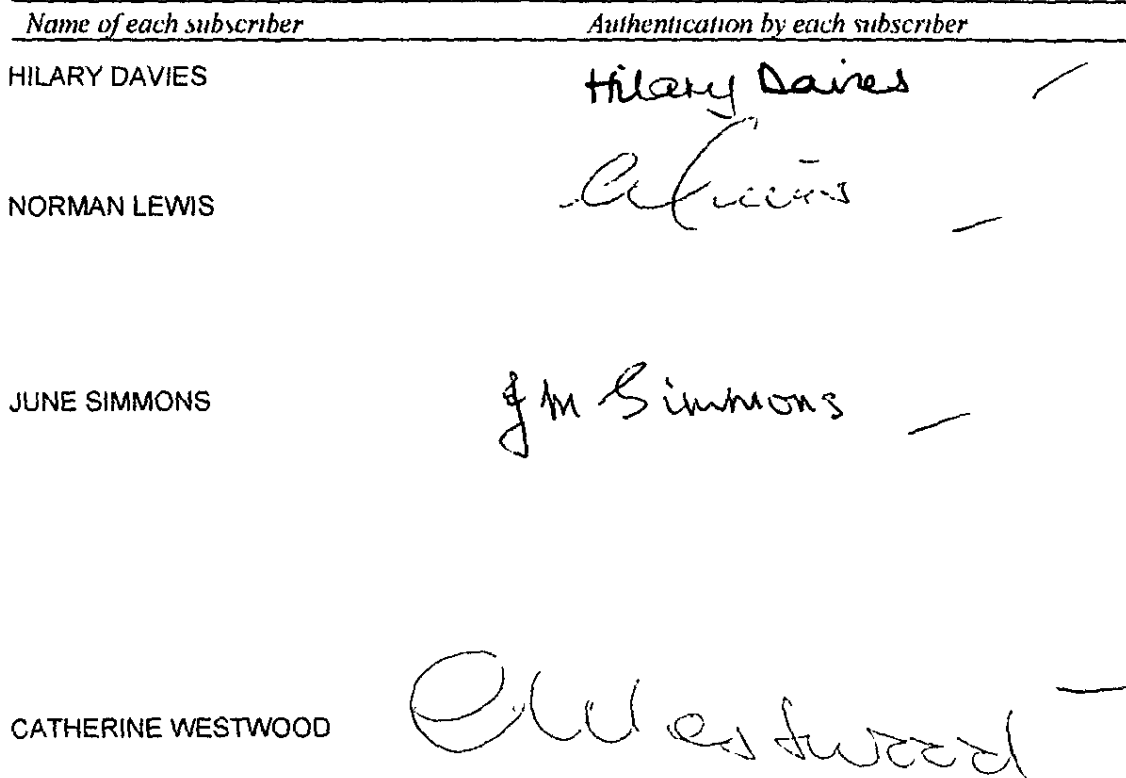 Name of each subscriber Authentication by each subscriber
HILARY DAVIES Hilary Davies
NORMAN LEWIS Lewis
JUNE SIMMONS J M Simmons
CATHERINE WESTWOOD C Westwood